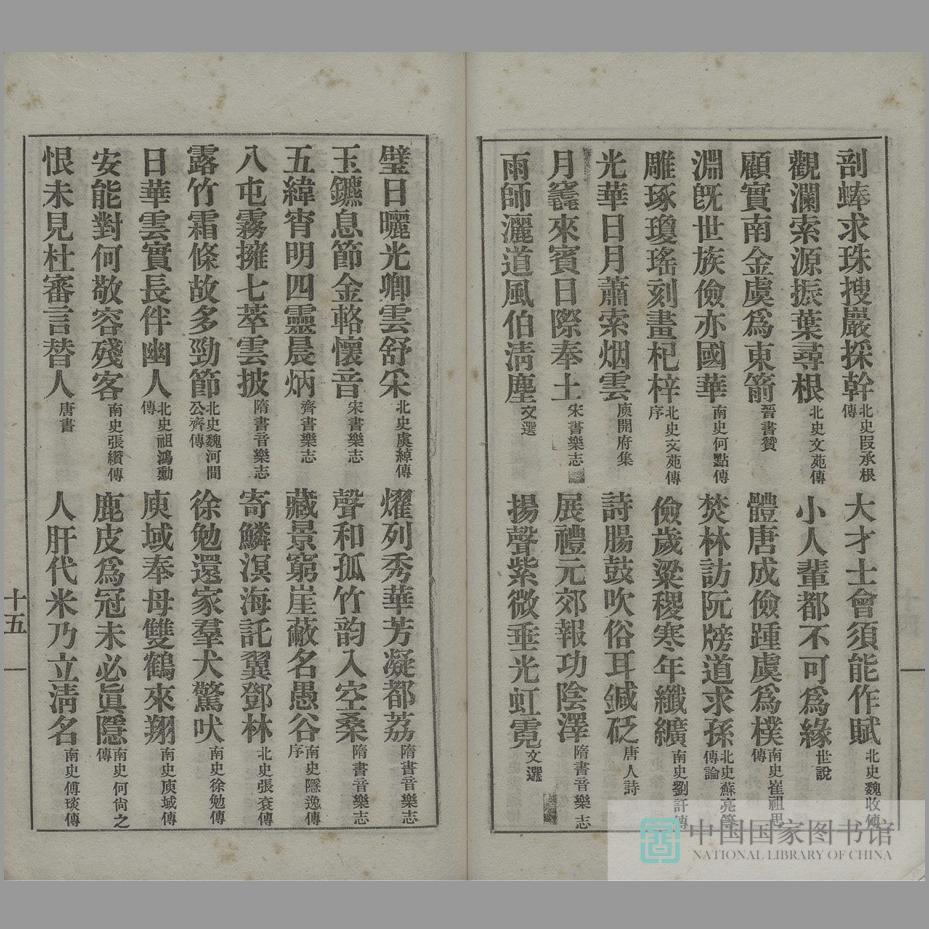 剖蜯求珠搜巖採幹北史叚承根傳 大才士會須能作賦北史魏收傳
觀瀾索源振葉尋根北史文苑傳 小人輩都不可爲緣世說
顧實南金虞爲東箭晉書贊 體唐成儉踵虞爲樸南史崔祖思傳
淵旣世族儉亦國華南史何點傳 焚林訪阮牓道求孫北史蘇亮等傳論
雕琢瓊瑤刻畫杞梓北史文苑傳序 儉歲粱稷寒年纖纊南史劉訏傳
光華日月蕭索烟雲庾開府集 詩腸鼓吹俗耳鍼砭唐人詩
月竁來賓日際奉土宋書樂志 展禮元郊報功陰澤隋書音樂志
雨師灑道風伯清塵文選 揚聲紫微垂光虹霓文選
璧日曬光卿雲舒采北史虞綽傳 燿列秀華芳凝都荔隋書音樂志
玉鑣息節金輅懷音宋書樂志 聲和孤竹韵入空桑隋書音樂志
五緯宵明四靈晨炳齊書樂志 藏景窮崖蔽名愚谷南史隱逸傳序
八屯霧擁七萃雲披隋書音樂志 寄鱗溟海託翼鄧林北史張袞傳
露竹霜條故多勁節北史魏河間公齊傳 徐勉還家羣犬驚吠南史徐勉傳
日華雲實長伴幽人北史祖鴻勳傳 庾域奉母雙鶴來翔南史庾域傳
安能對何敬容殘客南史張纘傳 鹿皮爲冠未必眞隱南史何尙之傳
恨未見杜審言替人唐書 人肝代米乃立清名南史傅琰傳
十五
中国国家图书馆
NATIONAL LIBRARY OF CHINA